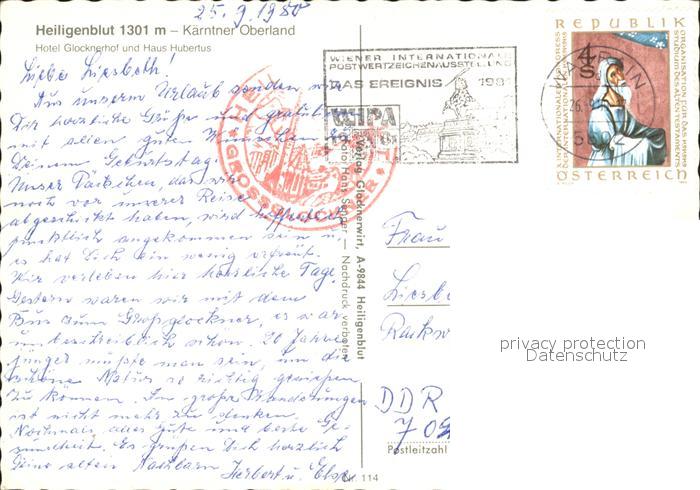 25.9.1980
Heiligenblut 1301 m – Kärntner Oberland
Hotel Glocknerhof und Haus Hubertus
Liebe Liesbeth!
Aus unserm Urlaub senden wir
Dir herzliche Grüße und gratulieren
mit allen guten Wünschen
Deinem Geburtstag.
Unser Päckchen, das wir
noch vor unserer Reise
abgeschickt haben, wird hoffentlich
pünktlich angekommen sein u.
es hat Dich ein wenig erfreut.
Wir verleben hier herrliche Tage.
Gestern waren wir mit dem
Bus zum Großglockner, es war
unbeschreiblich schön. 20 Jahre
jünger müßte man sein, um die
schöne Natur so richtig genießen
zu können. An große Wanderungen
ist nicht mehr zu denken.
Nochmals alles Gute und beste Ge-
sundheit. Es grüßen Dich herzlich
Deine alten Nachbarn Herbert u. Else
WIENER INTERNATIONALE
POSTWERTZEICHENAUSSTELLUNG
DAS EREIGNIS 1981
WIPA
GROSSGLOCKNER
Verlag Glocknerwirt, A-9844 Heiligenblut
Foto Hans — Nachdruck verboten
REPUBLIK
4
S
ÖSTERREICH
Frau
Liesbe
DDR
Postleitzahl
Nr. 114
privacy protection
Datenschutz